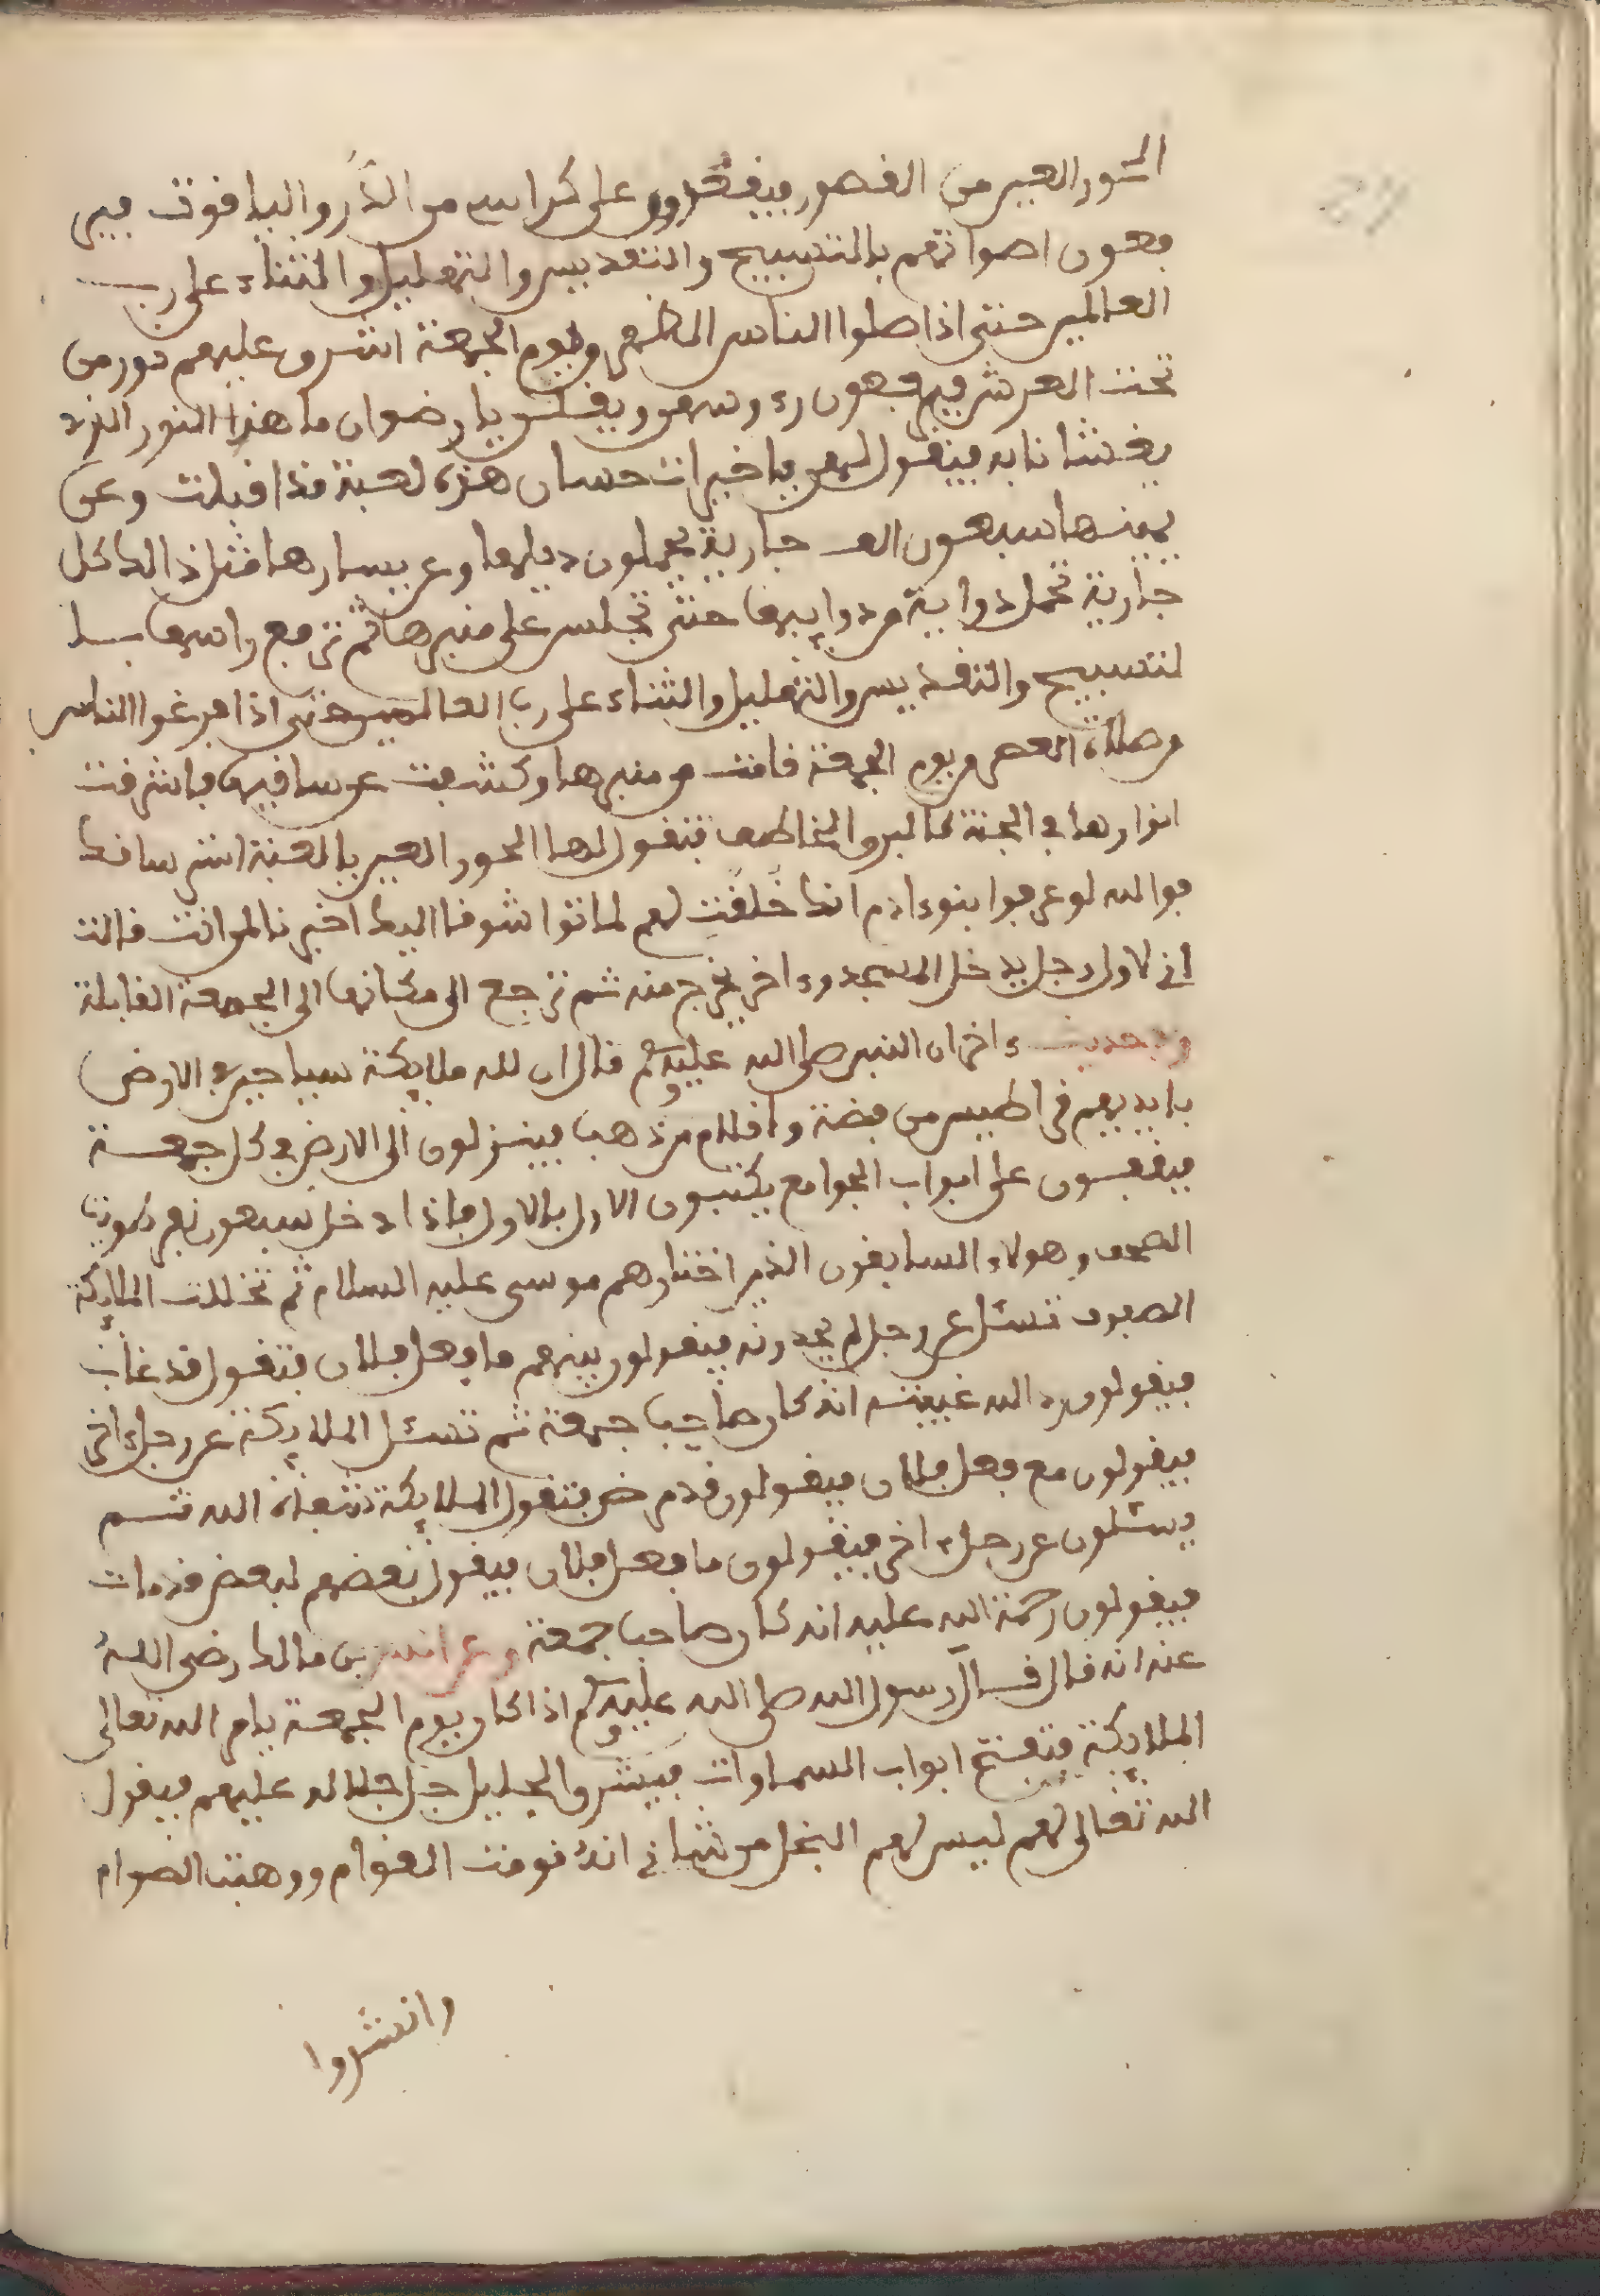 الحور العين من القصور فيقعدون على كراسي من الدر والياقوت فير
فعون اصواتهم بالتسبيح والتقديس والتهليل والثناء على رب
العالمين حتى اذا صلوا الناس الظهر يوم الجمعة اشرق عليهم نور من
تحت العرش فيرفعون رءوسهن ويقلن يا رضوان ما هذا النور الذي
يغشانا به فيقول لهن يا خيرات حسان هذه لعبة قد اقبلت وعن
يمينها سبعون الف جارية يحملون ذيلها وعن يسارها مثل ذالك كل
جارية تحمل ذواية من ذوايبها حتى تجلس على منبرها ثم ترفع راسها با
لتسبيح والتقديس والتهليل والثناء على رب العالمين حتى اذا فرغوا الناس
من صلاة العصر يوم الجمعة قامت من منبرها وكشفت عن ساقيها فاشرقت
انوارها في الجنة كالبرق الخاطف فتقول لها الحور العين يا لعبة استر ساقك
فوالله لو عرفوا بنوء ادم انك خلقت لهم لماتوا شوقا اليك اخبرنا لمن انت قالت
اني لاول رجل يدخل المسجد وءاخر يخرج منه ثم ترجع الى مكانها الى الجمعة القابلة
وفي حديث ءاخر ان النبي صلى الله عليه وسلم قال ان لله ملايكة سياحين في الارض
بايديهم قراطيس من فضة واقلام من ذهب فينزلون الى الارض في كل جمعة
فيقفون على ابواب الجوامع يكتبون الاول بالاول فاذا دخل سبعون نفر طويت
الصحف وهولاء السابقون الذين اختارهم موسى عليه السلام ثم تخللت الملايكة
الصفوف تسئل عن رجل لم يجدونه فيقولون بينهم ما فعل فلان فتقول قد غاب
فيقولون رد الله غيبته انه كان صاحب جمعة ثم تسئل الملايكة عن رجل ءاخر
فيقولون مع فعل فلان فيقولون قد مرض فتقول الملايكة شفاه الله ثم
يسئلون عن رجل ءاخر فيقولون ما فعل فلان فيقول بعضهم لبعض قد مات
فيقولون رحمة الله عليه انه كان صاحب جمعة وعن انس بن مالك رضي الله
عنه انه قال قال رسول الله صلى الله عليه وسلم اذا كان يوم الجمعة يامر الله تعالى
الملايكة فتفتح ابواب السماوات فيشرق الجليل جل جلاله عليهم فيقول
الله تعالى لهم ليس لهم البخل من شاني انه قومت القوام ووهبت الصوام
وانشروا